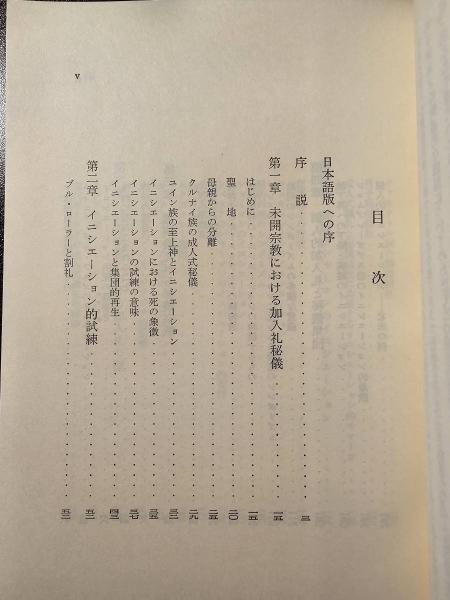 目次
日本語版への序
序説 三
第一章 未開宗教における加入礼秘儀 一五
はじめに 一五
聖地 二〇
母親からの分離 二五
クルナイ族の成人式秘儀 二九
ユイン族の至上神とイニシエーション 三二
イニシエーションにおける死の象徴 三五
イニシエーションの試練の意味 三七
イニシエーションと集団的再生 四三
第二章 イニシエーション的試練 五一
ブル・ローラーと割礼 五一
v